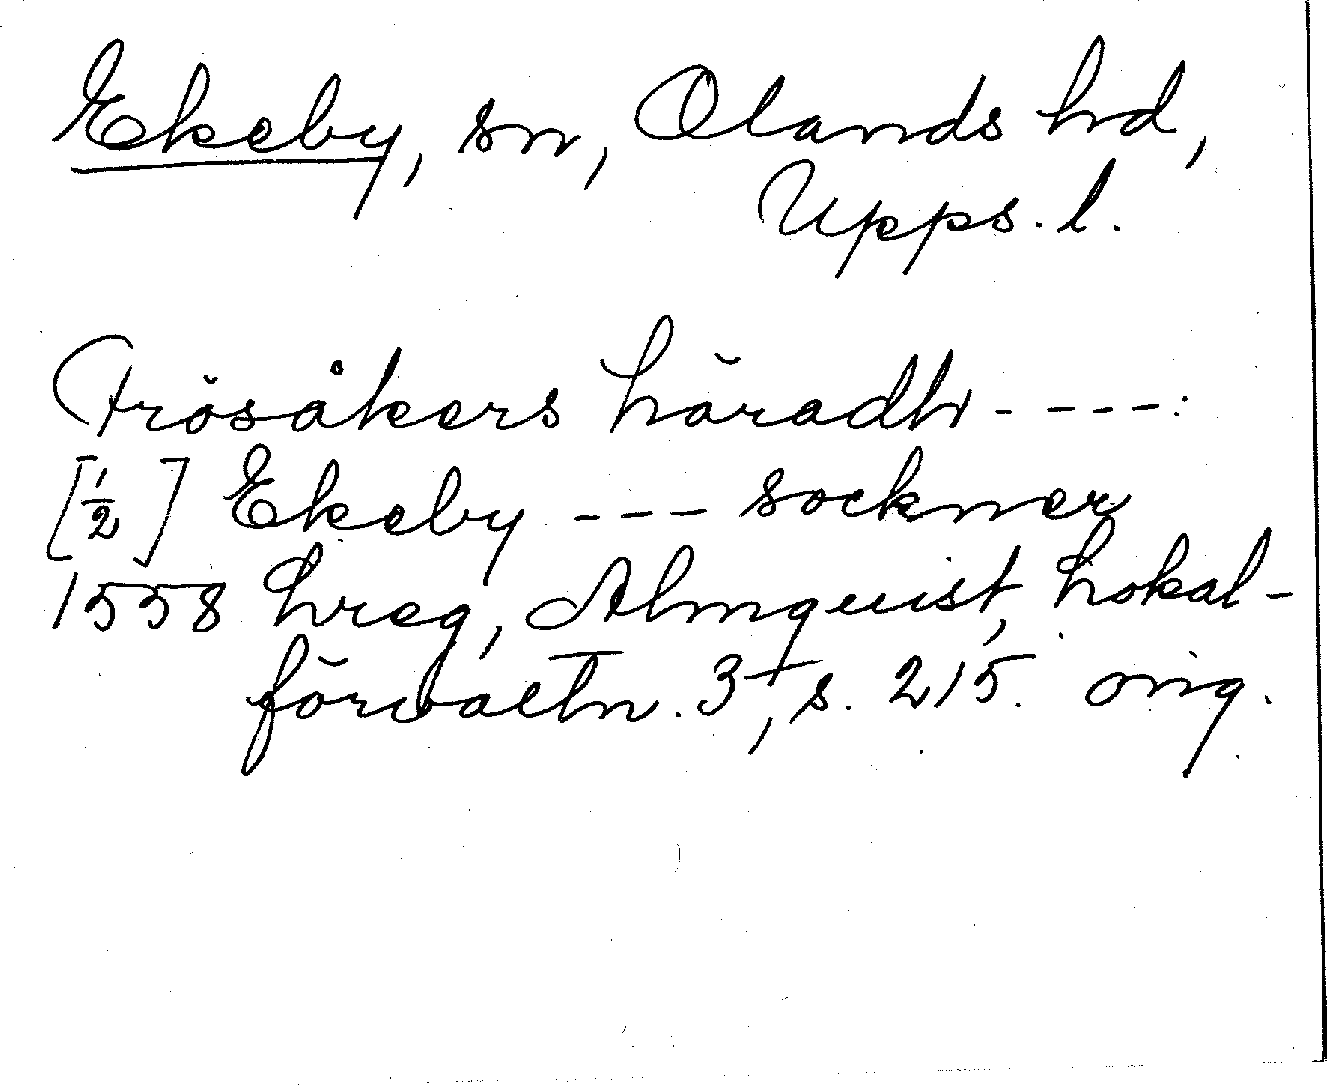 Ekeby, sn, Olands hd,
Upps. l.
Frösåkers häradh ----:
[1/2] Ekeby --- sockner
1558 hreg, Almquist, Lokal-
förvaltn. 3, s. 215. orig.